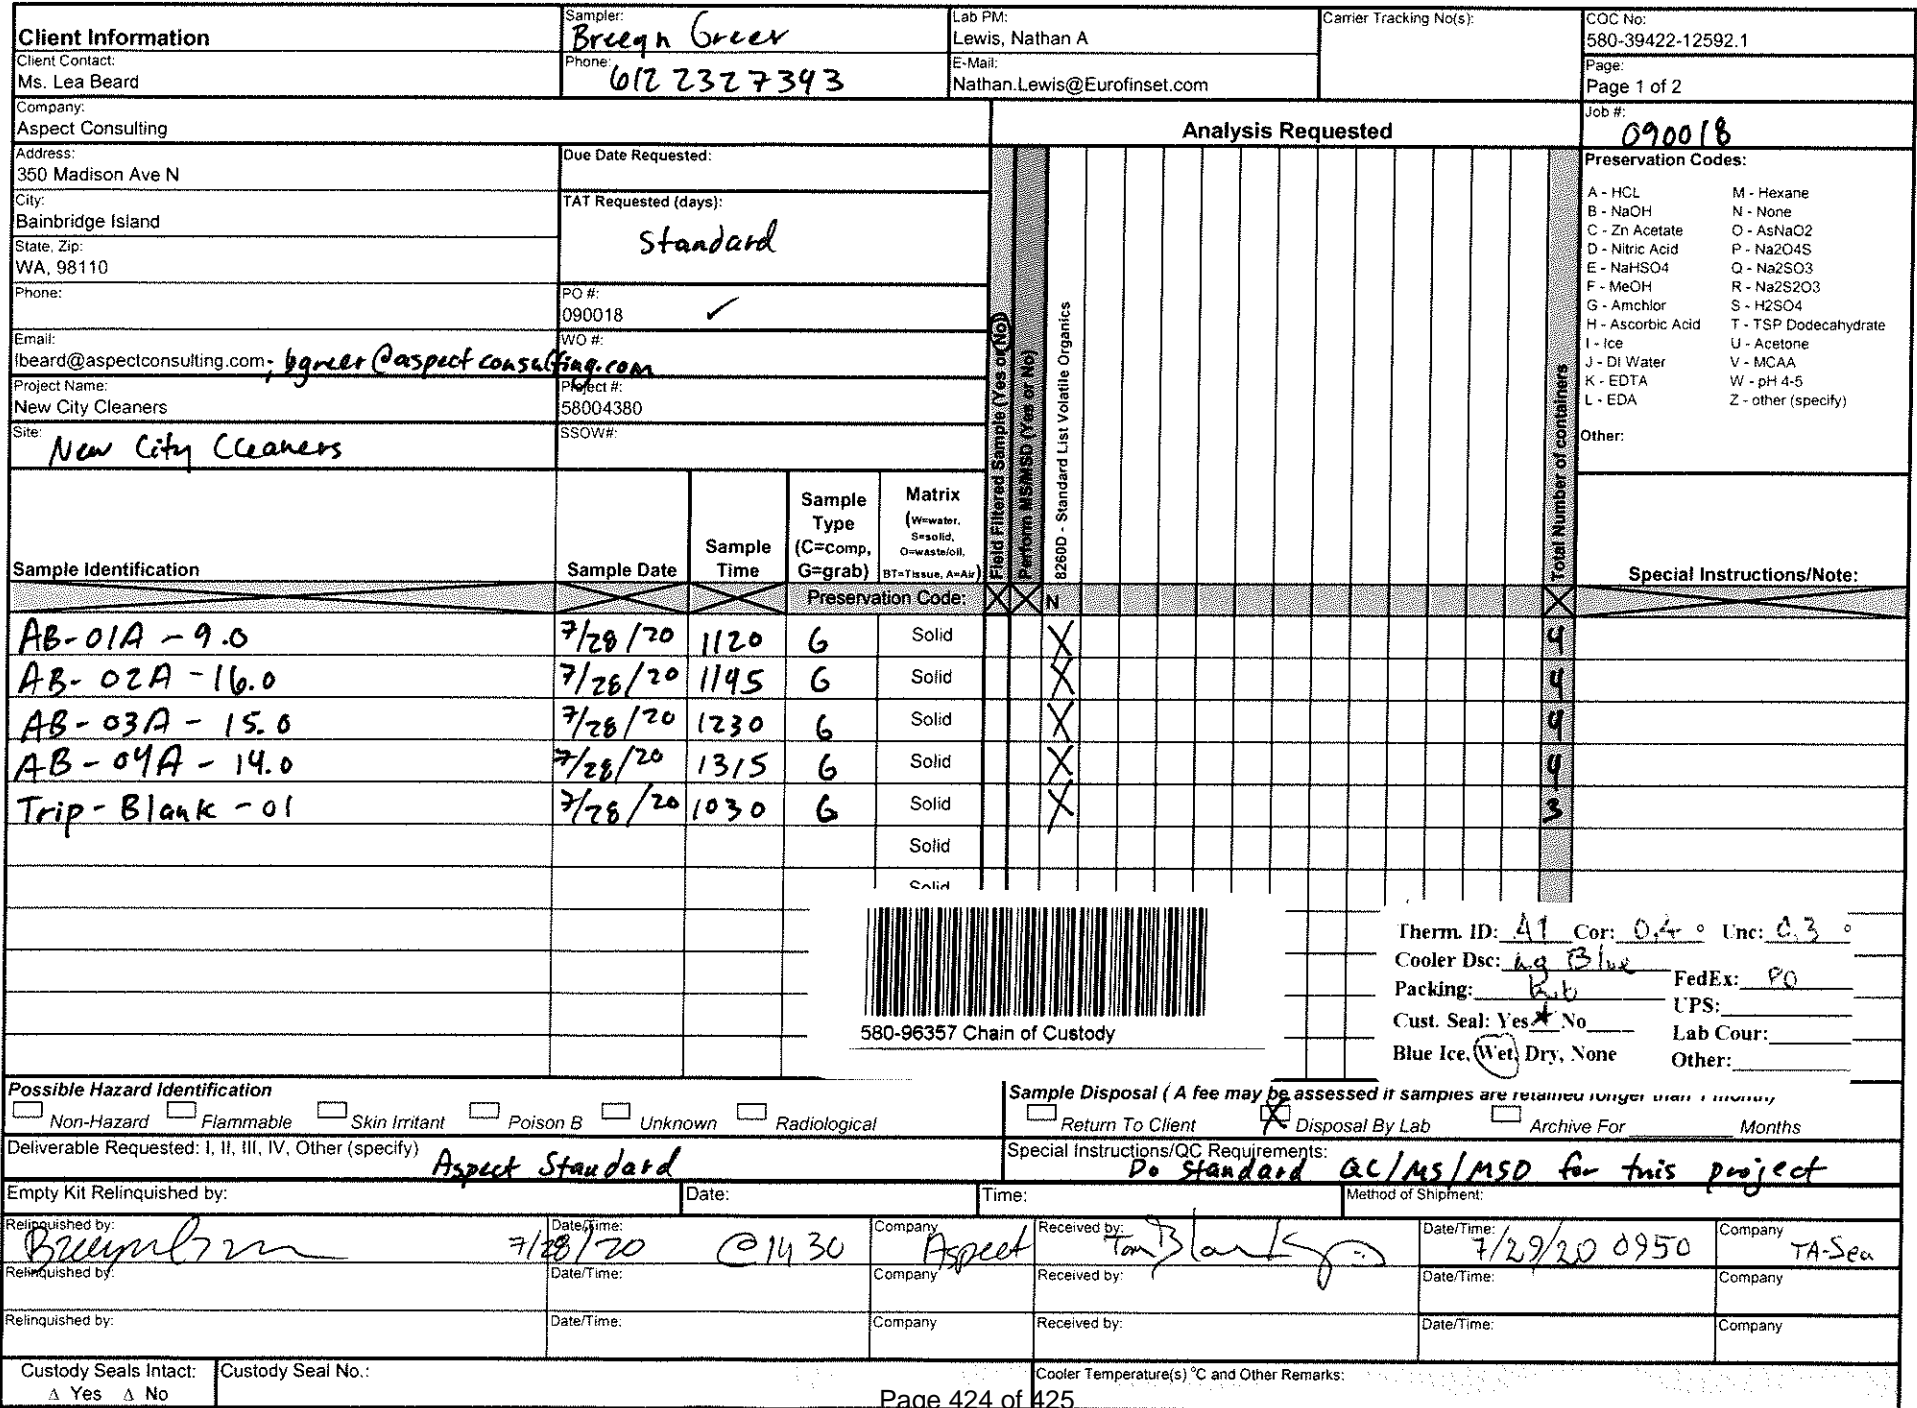 Client Information
Sampler: Breeyn Greer
Lab PM: Lewis, Nathan A
Carrier Tracking No(s):
COC No: 580-39422-12592.1
Client Contact: Ms. Lea Beard
Phone: 612 232 7393
E-Mail: Nathan.Lewis@Eurofinset.com
Page: Page 1 of 2
Company: Aspect Consulting
Analysis Requested
Job #: 090018
Address: 350 Madison Ave N
Due Date Requested:
City: Bainbridge Island
TAT Requested (days): Standard
State, Zip: WA, 98110
Phone:
PO #: 090018 ✓
Email: lbeard@aspectconsulting.com; bgreer@aspectconsulting.com
WO #:
Project Name: New City Cleaners
Project #: 58004380
Site: New City Cleaners
SSOW#:
Field Filtered Sample (Yes or No)
Perform MS/MSD (Yes or No)
8260D - Standard List Volatile Organics
Total Number of containers
Preservation Codes:
A - HCL M - Hexane
B - NaOH N - None
C - Zn Acetate O - AsNaO2
D - Nitric Acid P - Na2O4S
E - NaHSO4 Q - Na2SO3
F - MeOH R - Na2S2O3
G - Amchlor S - H2SO4
H - Ascorbic Acid T - TSP Dodecahydrate
I - Ice U - Acetone
J - DI Water V - MCAA
K - EDTA W - pH 4-5
L - EDA Z - other (specify)
Other:
Sample Identification
Sample Date
Sample Time
Sample Type (C=comp, G=grab)
Matrix (W=water, S=solid, O=waste/oil, BT=Tissue, A=Air)
Special Instructions/Note:
Preservation Code: X X N X
AB-01A - 9.0 7/28/20 1120 G Solid X 4
AB-02A - 16.0 7/28/20 1145 G Solid X 4
AB-03A - 15.0 7/28/20 1230 G Solid X 4
AB-04A - 14.0 7/28/20 1315 G Solid X 4
Trip-Blank-01 7/28/20 1030 G Solid X 3
Solid
Solid
580-96357 Chain of Custody
Therm. ID: A1 Cor: 0.4 ° Unc: 0.3 °
Cooler Dsc: Lg Blue
FedEx: PO
Packing:
UPS:
Cust. Seal: Yes No
Lab Cour:
Blue Ice, Wet, Dry, None
Other:
Possible Hazard Identification
Non-Hazard Flammable Skin Irritant Poison B Unknown Radiological
Sample Disposal ( A fee may be assessed if samples are retained longer than 1 month)
Return To Client X Disposal By Lab Archive For Months
Deliverable Requested: I, II, III, IV, Other (specify) Aspect Standard
Special Instructions/QC Requirements: Do standard QC/MS/MSD for this project
Empty Kit Relinquished by:
Date:
Time:
Method of Shipment:
Relinquished by:
Date/Time: 7/28/20 @1430
Company Aspect
Received by: Tom Blankinship
Date/Time: 7/29/20 0950
Company TA-Sea
Relinquished by:
Date/Time:
Company
Received by:
Date/Time:
Company
Relinquished by:
Date/Time:
Company
Received by:
Date/Time:
Company
Custody Seals Intact:
Δ Yes Δ No
Custody Seal No.:
Cooler Temperature(s) °C and Other Remarks:
Page 424 of 425